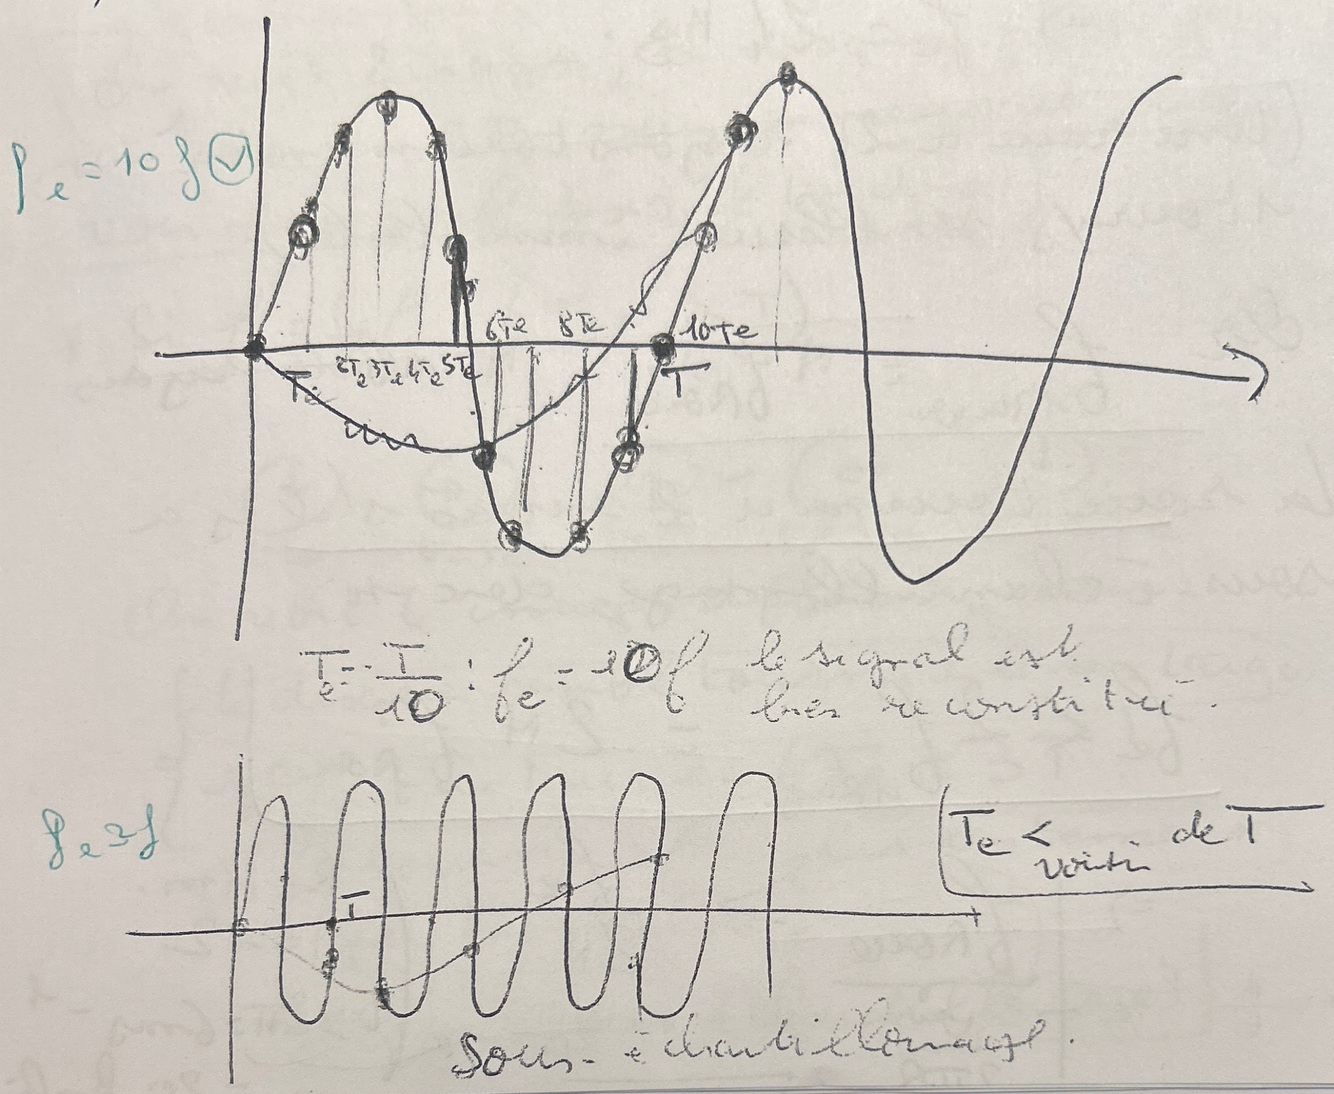 fe = 10 f
6Te 8Te 10Te
Te 2Te 3Te 4Te 5Te T
Te = T/10 : fe = 10f le signal est
bien reconstitué.
T
Te < voisin de T
Sous-échantillonnage.